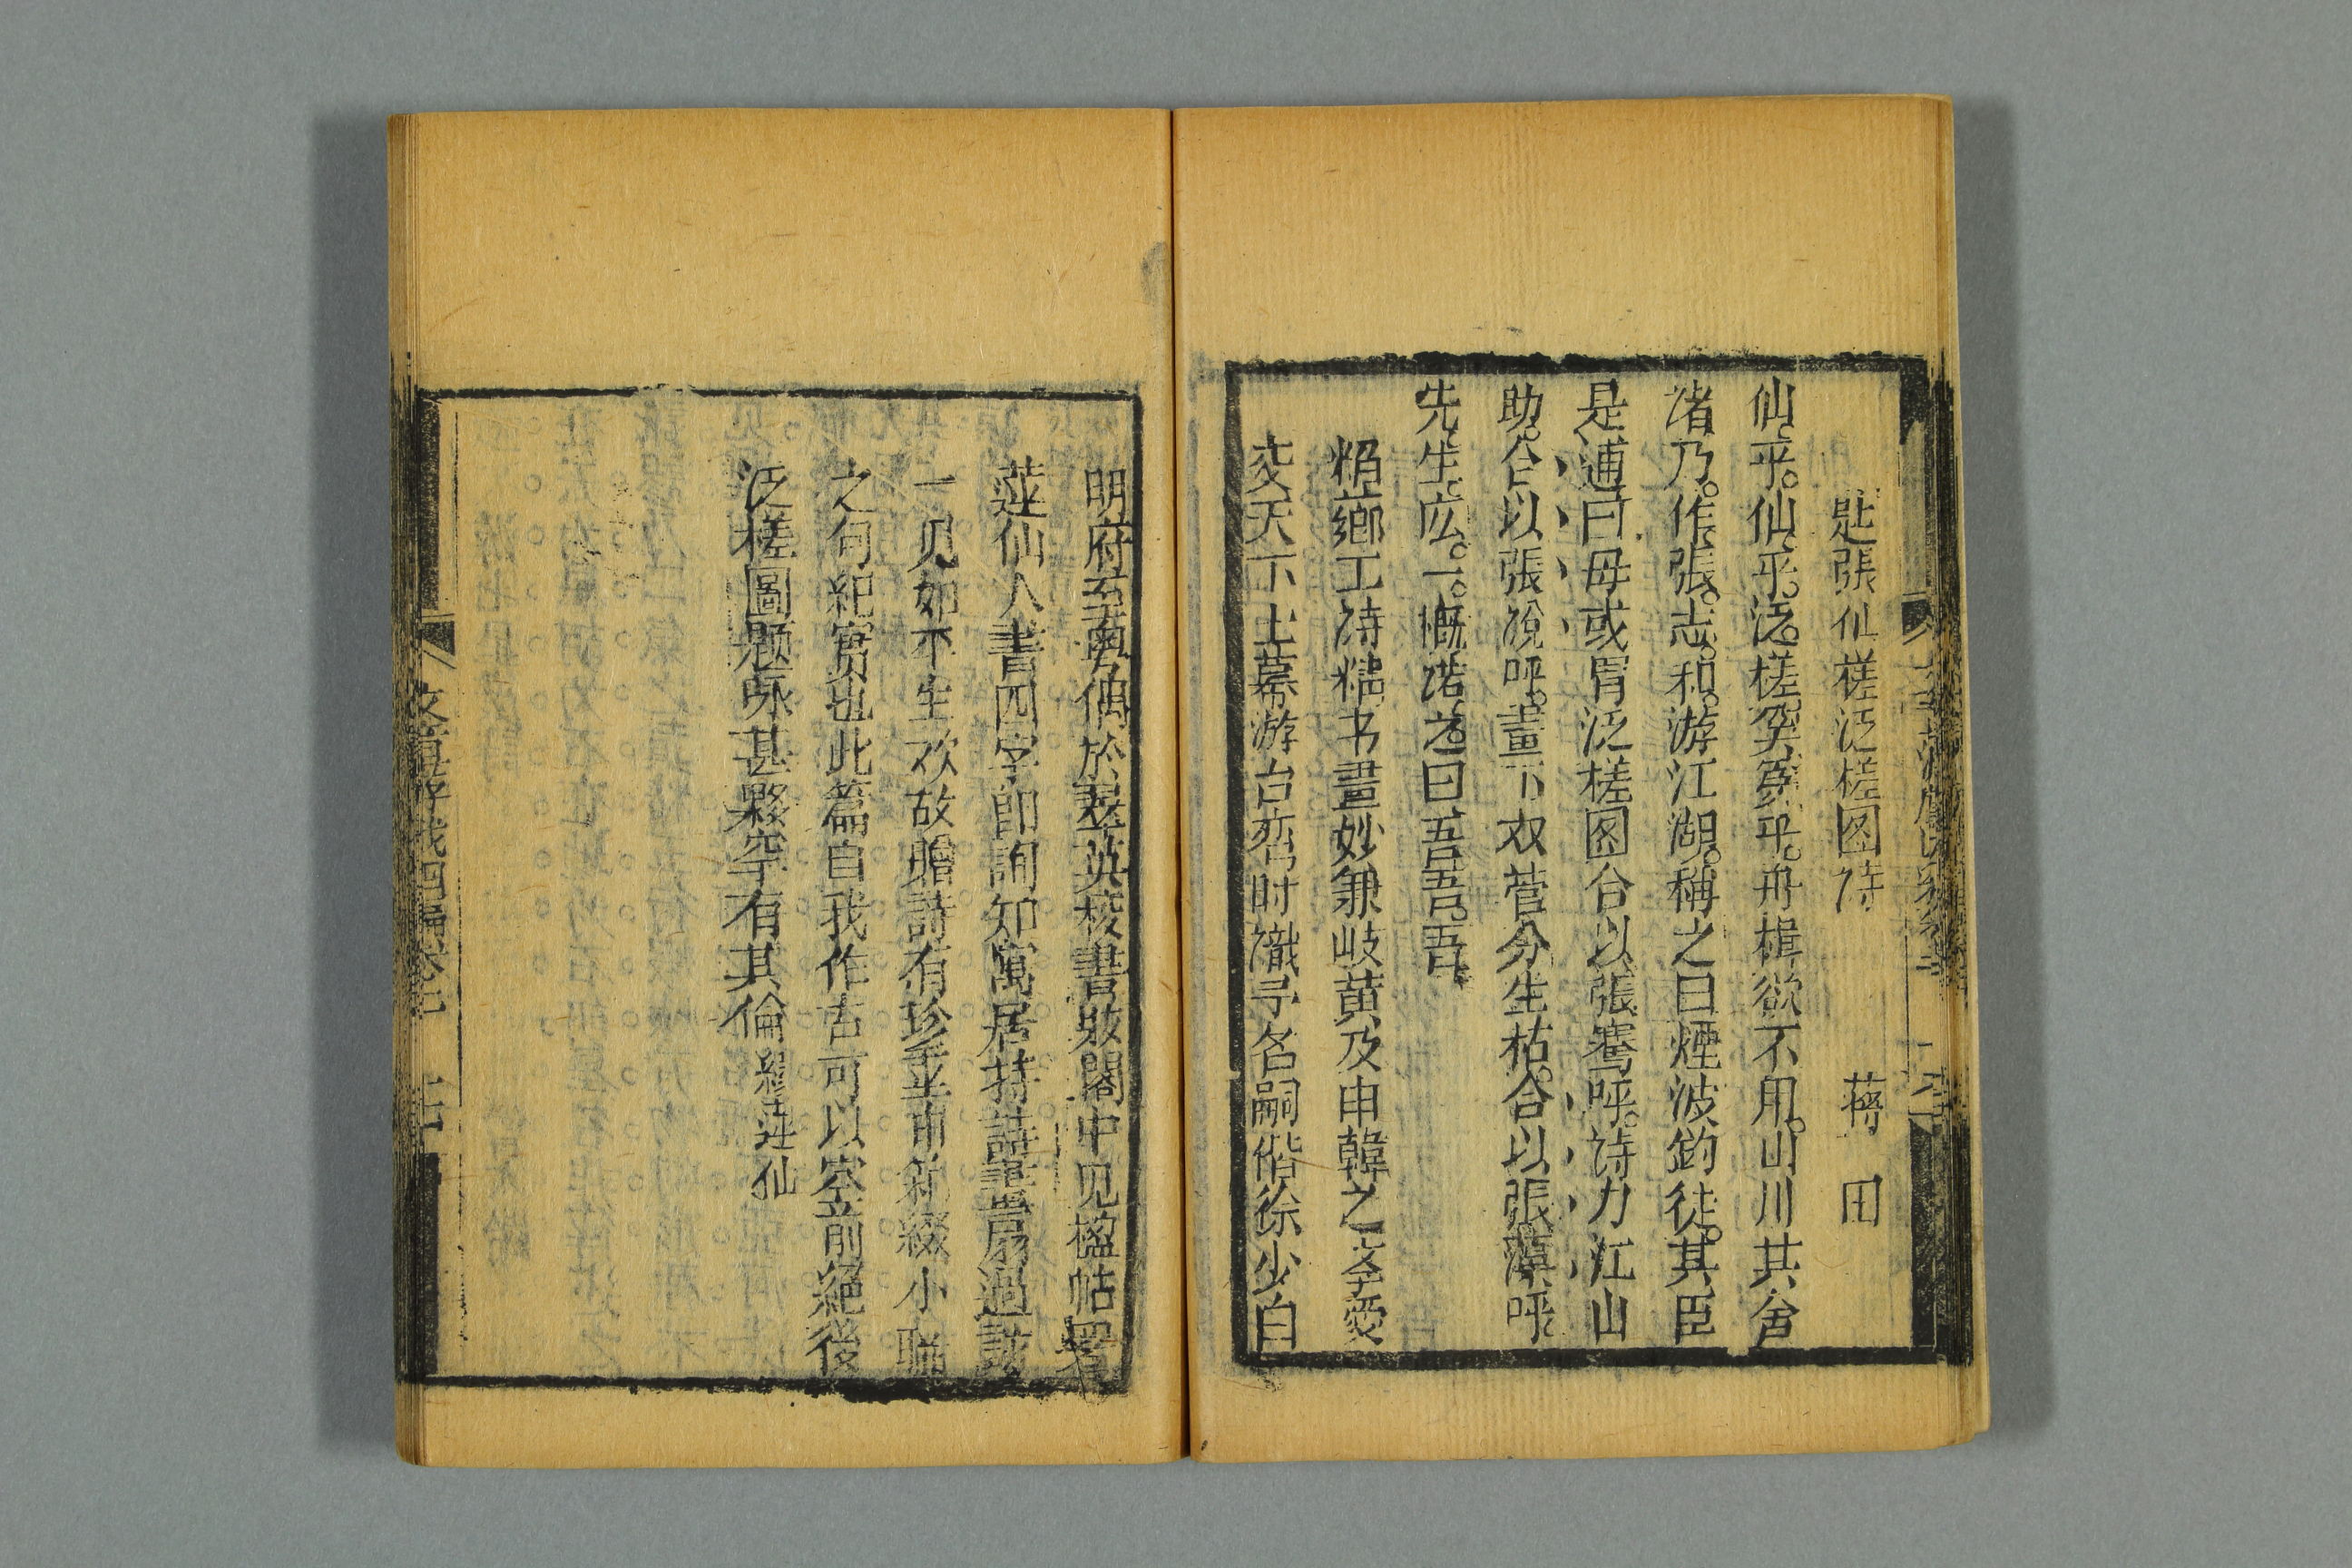 題張仙槎泛槎图诗 蔣田
仙乎仙乎泛槎笑冤乎舟楫欲不用山川其舍
诸乃作張志和游江湖稱之曰煙波釣徒其臣
是逋曰毋或胥泛槎图合以張騫呼诗力江山
助合以張說呼畫下双菅分生枯合以張藻呼
先生広一慨諾之曰吾吾吾
薌工诗精书畫妙兼岐黄及申韓之孝愛
交天下士幕游台湾时識予名嗣偕徐少白
明府至粤偶於叢英校書妝閣中见楹帖署
蓮仙人書四字即詢知寓居持詩扇過訪
一见如平生欢故贈詩有珍重前新綴小聯
之句紀實也此篇自我作古可以空前絕後
泛槎圖题咏甚夥罕有其倫 繆蓮仙
文章游戲四編卷三